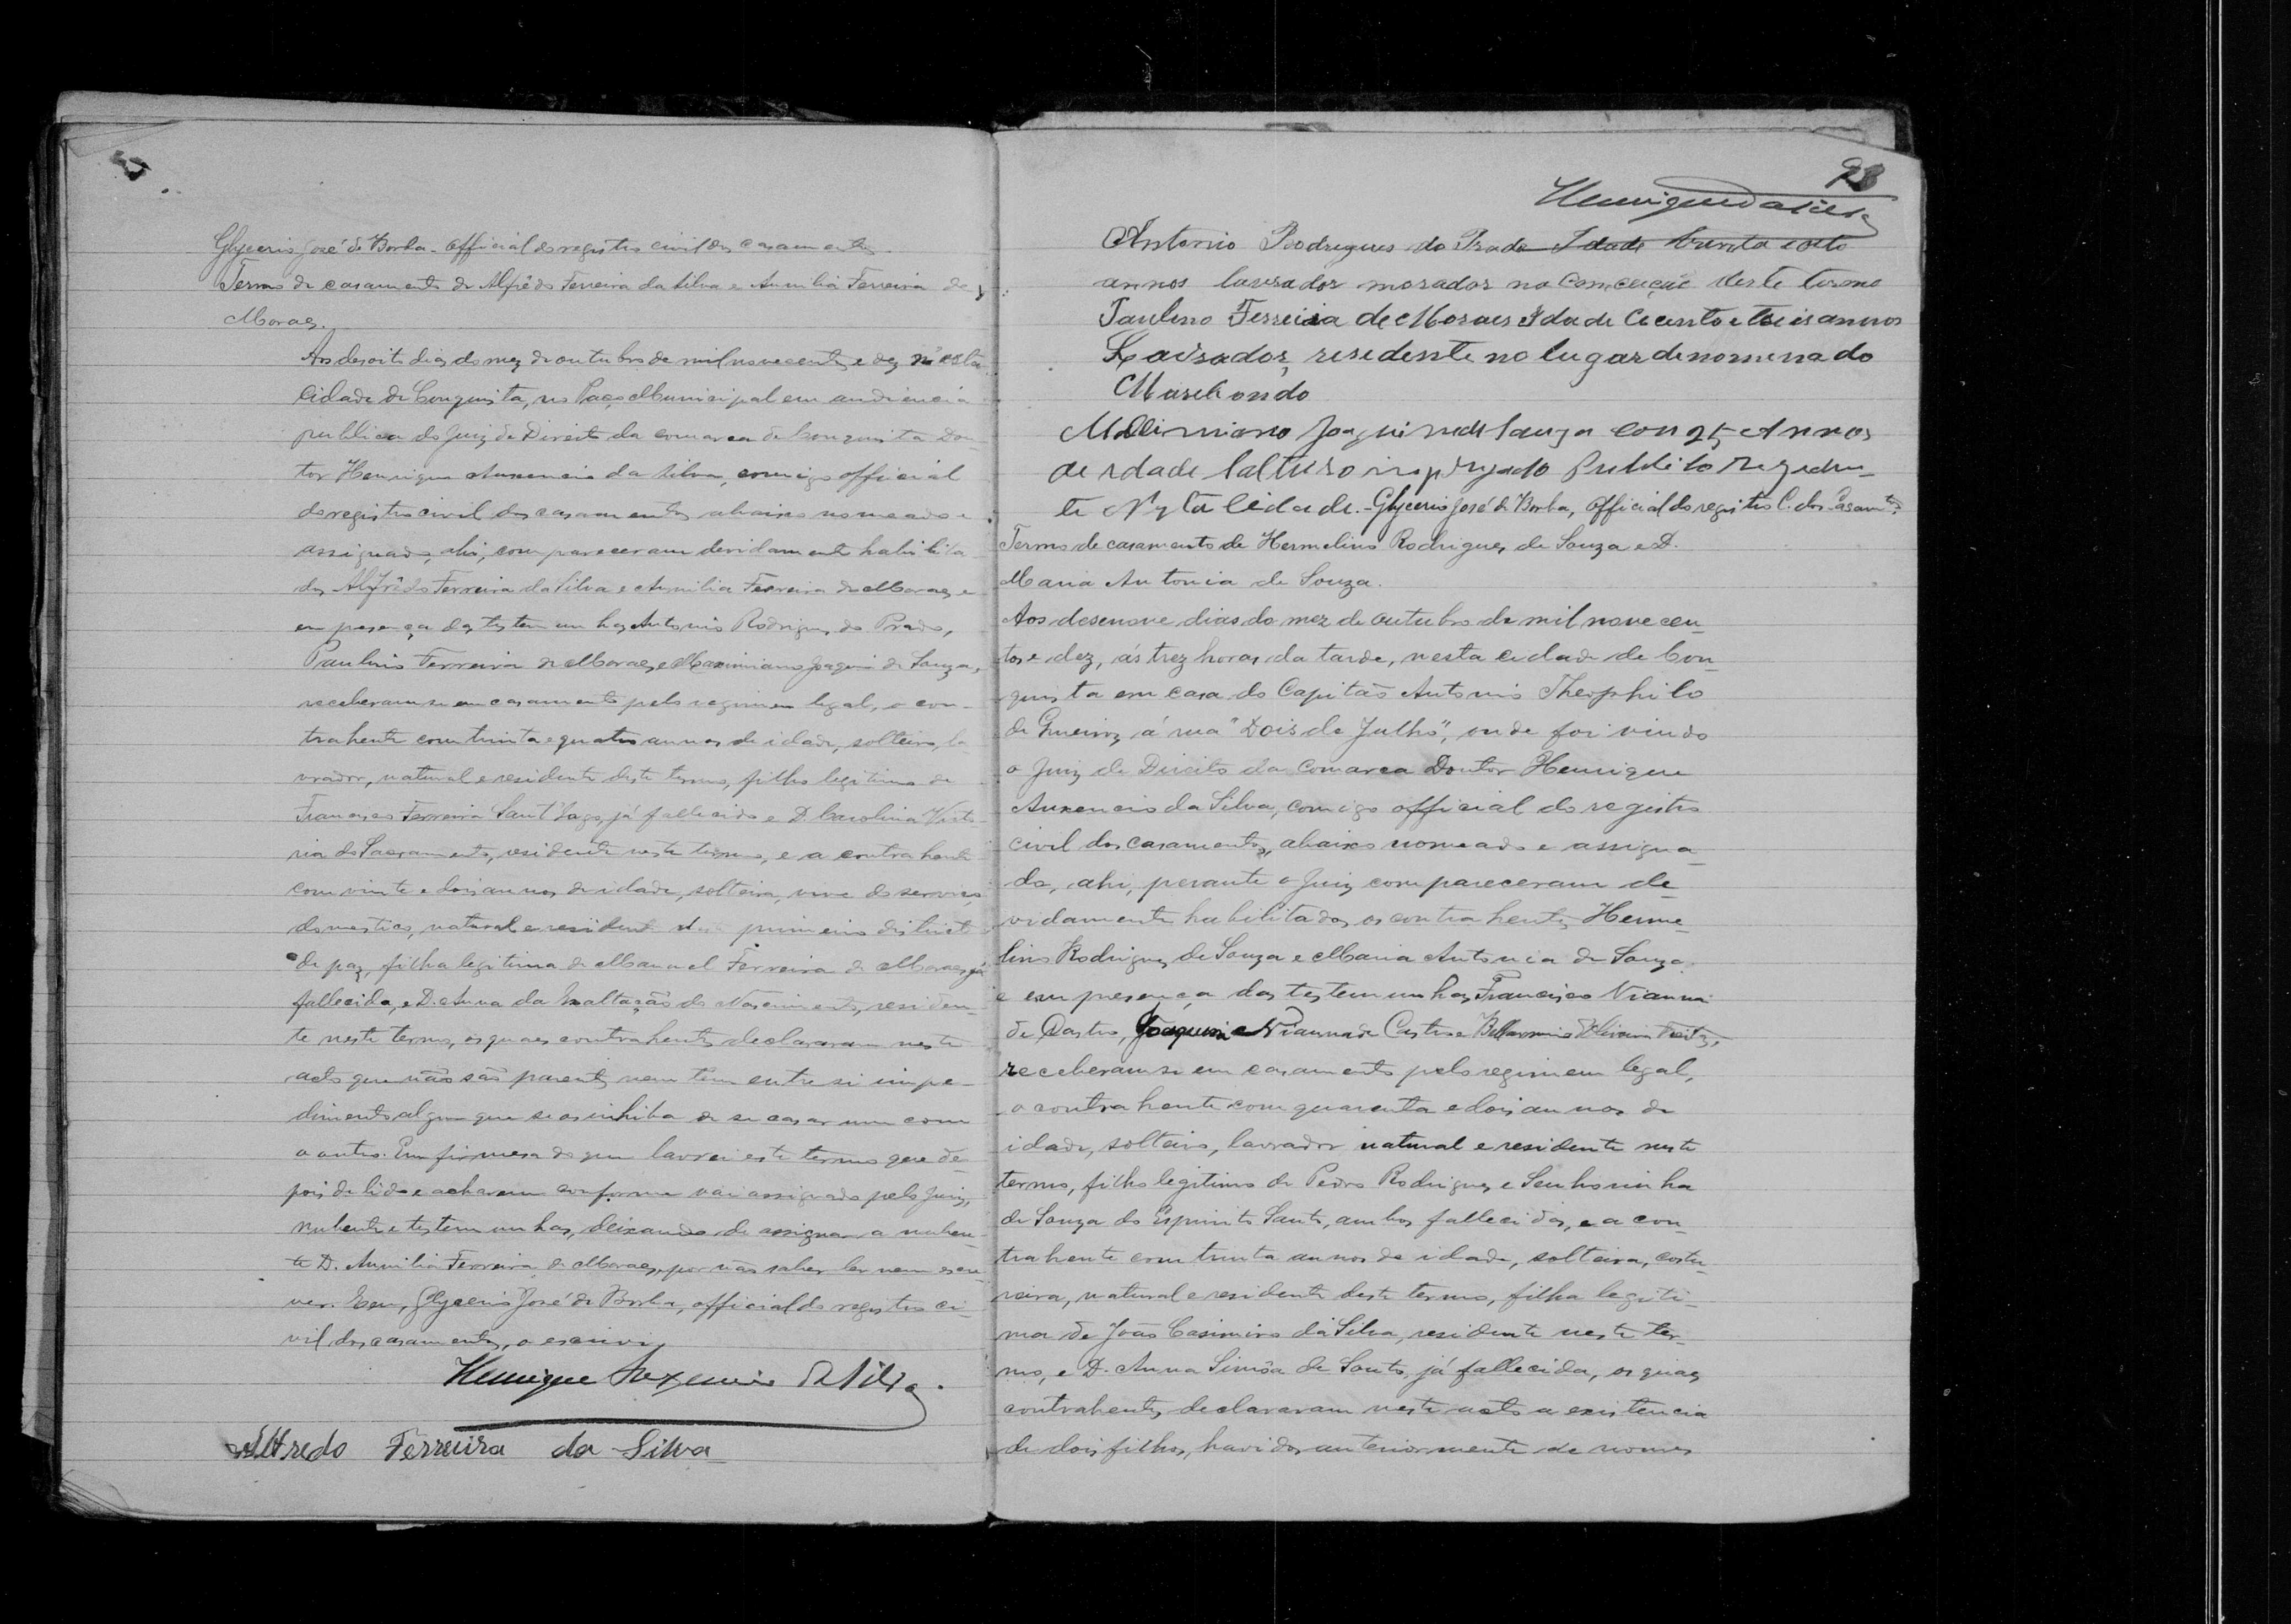 Glycerio José de Borba. Official do registro civil dos casamentos.
Termo de casamento de Alfrêdo Ferreira da Silva e Aurilia Ferreira de
Moraes.
Aos desoito dias do mez de outubro de mil novecentos e dez n'esta
Cidade de Conquista, no Paço Municipal em audiencia
publica do Juiz de Direito da comarca de Conquista Dou-
tor Henrique Auxencio da Silva, comigo official
do registro civil dos casamentos abaixo nomeado e
assignado, ahi, compareceram devidamente habilita
dos Alfrêdo Ferreira da Silva e Aurilia Ferreira de Moraes, e
em presença das testemunhas Antonio Rodrigues do Prado,
Paulino Ferreira de Moraes, e Maximiano Joaquim de Souza,
receberam-se em casamento pelo regimen legal, o con-
trahente com trinta e quatro annos de idade, solteiro, la
vrador, natural e residente deste termo, filho legitimo de
Francisco Ferreira Sant'Iago, já fallecido e D. Carolina Victo-
ria do Sacramento, residente neste termo, e a contrahente
com vinte e dois annos de idade, solteira, vive de serviços
domestico, natural e residente deste primeiro districto
de paz, filha legitima de Manoel Ferreira de Moraes, já
fallecido, e D. Anna da Exaltação do Nascimento, residen-
te neste termo, os quaes contrahentes declararam neste
acto que não são parentes nem tem entre si impe-
dimento algum que se os inhiba de se casar um com
o outro. Em firmesa do que lavrei este termo que de-
pois de lido e acharem conforme vai assignado pelo Juiz,
nubente e testemunhas, deixando de assignar a nuben-
te D. Aurilia Ferreira de Moraes, por não saber ler nem escre-
ver. Eu, Glycerio José de Borba, official do registro ci-
vil dos casamentos, o escrivi.
Henrique Auxencio da Silva.
Alfredo Ferreira da Silva
93
Henrique da Silva
Antonio Rodrigues do Prado Idade trenta e oito
annos lavrador morador na Conceição deste termo
Paulino Ferreira de Moraes Idade
Lavrador, residente no lugar denomenado
Maribondo
Joaquim de Souza con 25 Annos
de idade Publico
te Nesta Cidade. Glycerio José de Borba, Official do registro C. dos Casamtos.
Termo de casamento de Hermelino Rodrigues de Souza e D.
Maria Antonia de Souza.
Aos desenove dias do mez de outubro de mil novecen-
tos e dez, ás trez horas da tarde, nesta cidade de Con-
quista em casa do Capitão Antonio Theophilo
de Queiroz, á rua "Dois de Julho", onde foi vindo
o Juiz de Direito da comarca Doutor Henrique
Auxencio da Silva, comigo official do registro
civil dos casamentos, abaixo nomeado e assigna-
do, ahi, perante o Juiz compareceram de-
vidamente habilitados, os contrahentes Herme-
lino Rodrigues de Souza e Maria Antonia de Souza
e em presença das testemunhas Francisco Vianna
de Castro, Joaquim Vianna de Castro e Bellarmino
receberam-se em casamento pelo regimem legal,
o contrahente com quarenta e dois annos de
idade, solteiro, lavrador natural e residente neste
termo, filho legitimo de Pedro Rodrigues e Senhorinha
de Souza do Espirito Santo, ambos fallecidos, e a con-
trahente com trinta annos de idade, solteira, costu-
reira, natural e residente deste termo, filha legiti-
ma de João Casimiro da Silva, residente neste ter-
mo, e D. Anna Simôa de Souto, já fallecida, os quaes
contrahentes, declararam neste acto a existencia
de dois filhos, havidos anteriormente de nomes